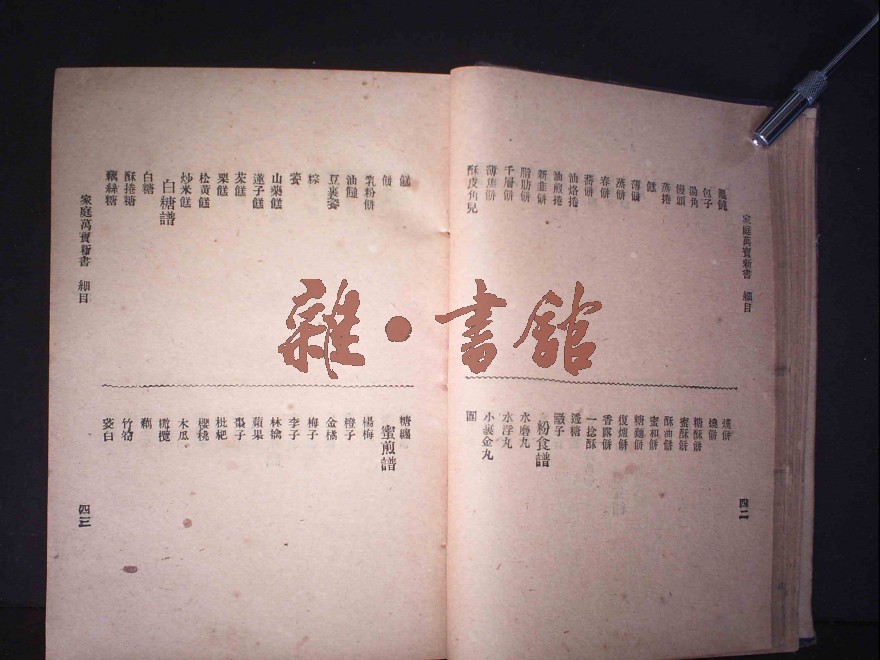 家庭萬寶新書 細目
四二
包子
湯角
饅頭
蒸捲
薄餅
蒸餅
春餅
油烙捲
油煎捲
新韭餅
脂肪餅
千層餅
薄焦餅
酥皮角兒
燒餅
糖酥餅
蜜酥餅
酥油餅
蜜和餅
糖麵餅
復爐餅
香露餅
一捻酥
透糖
粉食譜
水磨丸
水浮丸
小裹金丸
乳粉餅
油䭔
豆裹餈
粽
餈
山藥餻
蓮子餻
茶餻
栗餻
松黃餻
炒米餻
白糖譜
白糖
酥捲糖
藕絲糖
家庭萬寶新書 細目
四三
糖纏
蜜煎譜
楊梅
橙子
金橘
梅子
李子
林檎
蘋果
棗子
枇杷
櫻桃
木瓜
橄欖
藕
竹筍
茭白
雜·書館